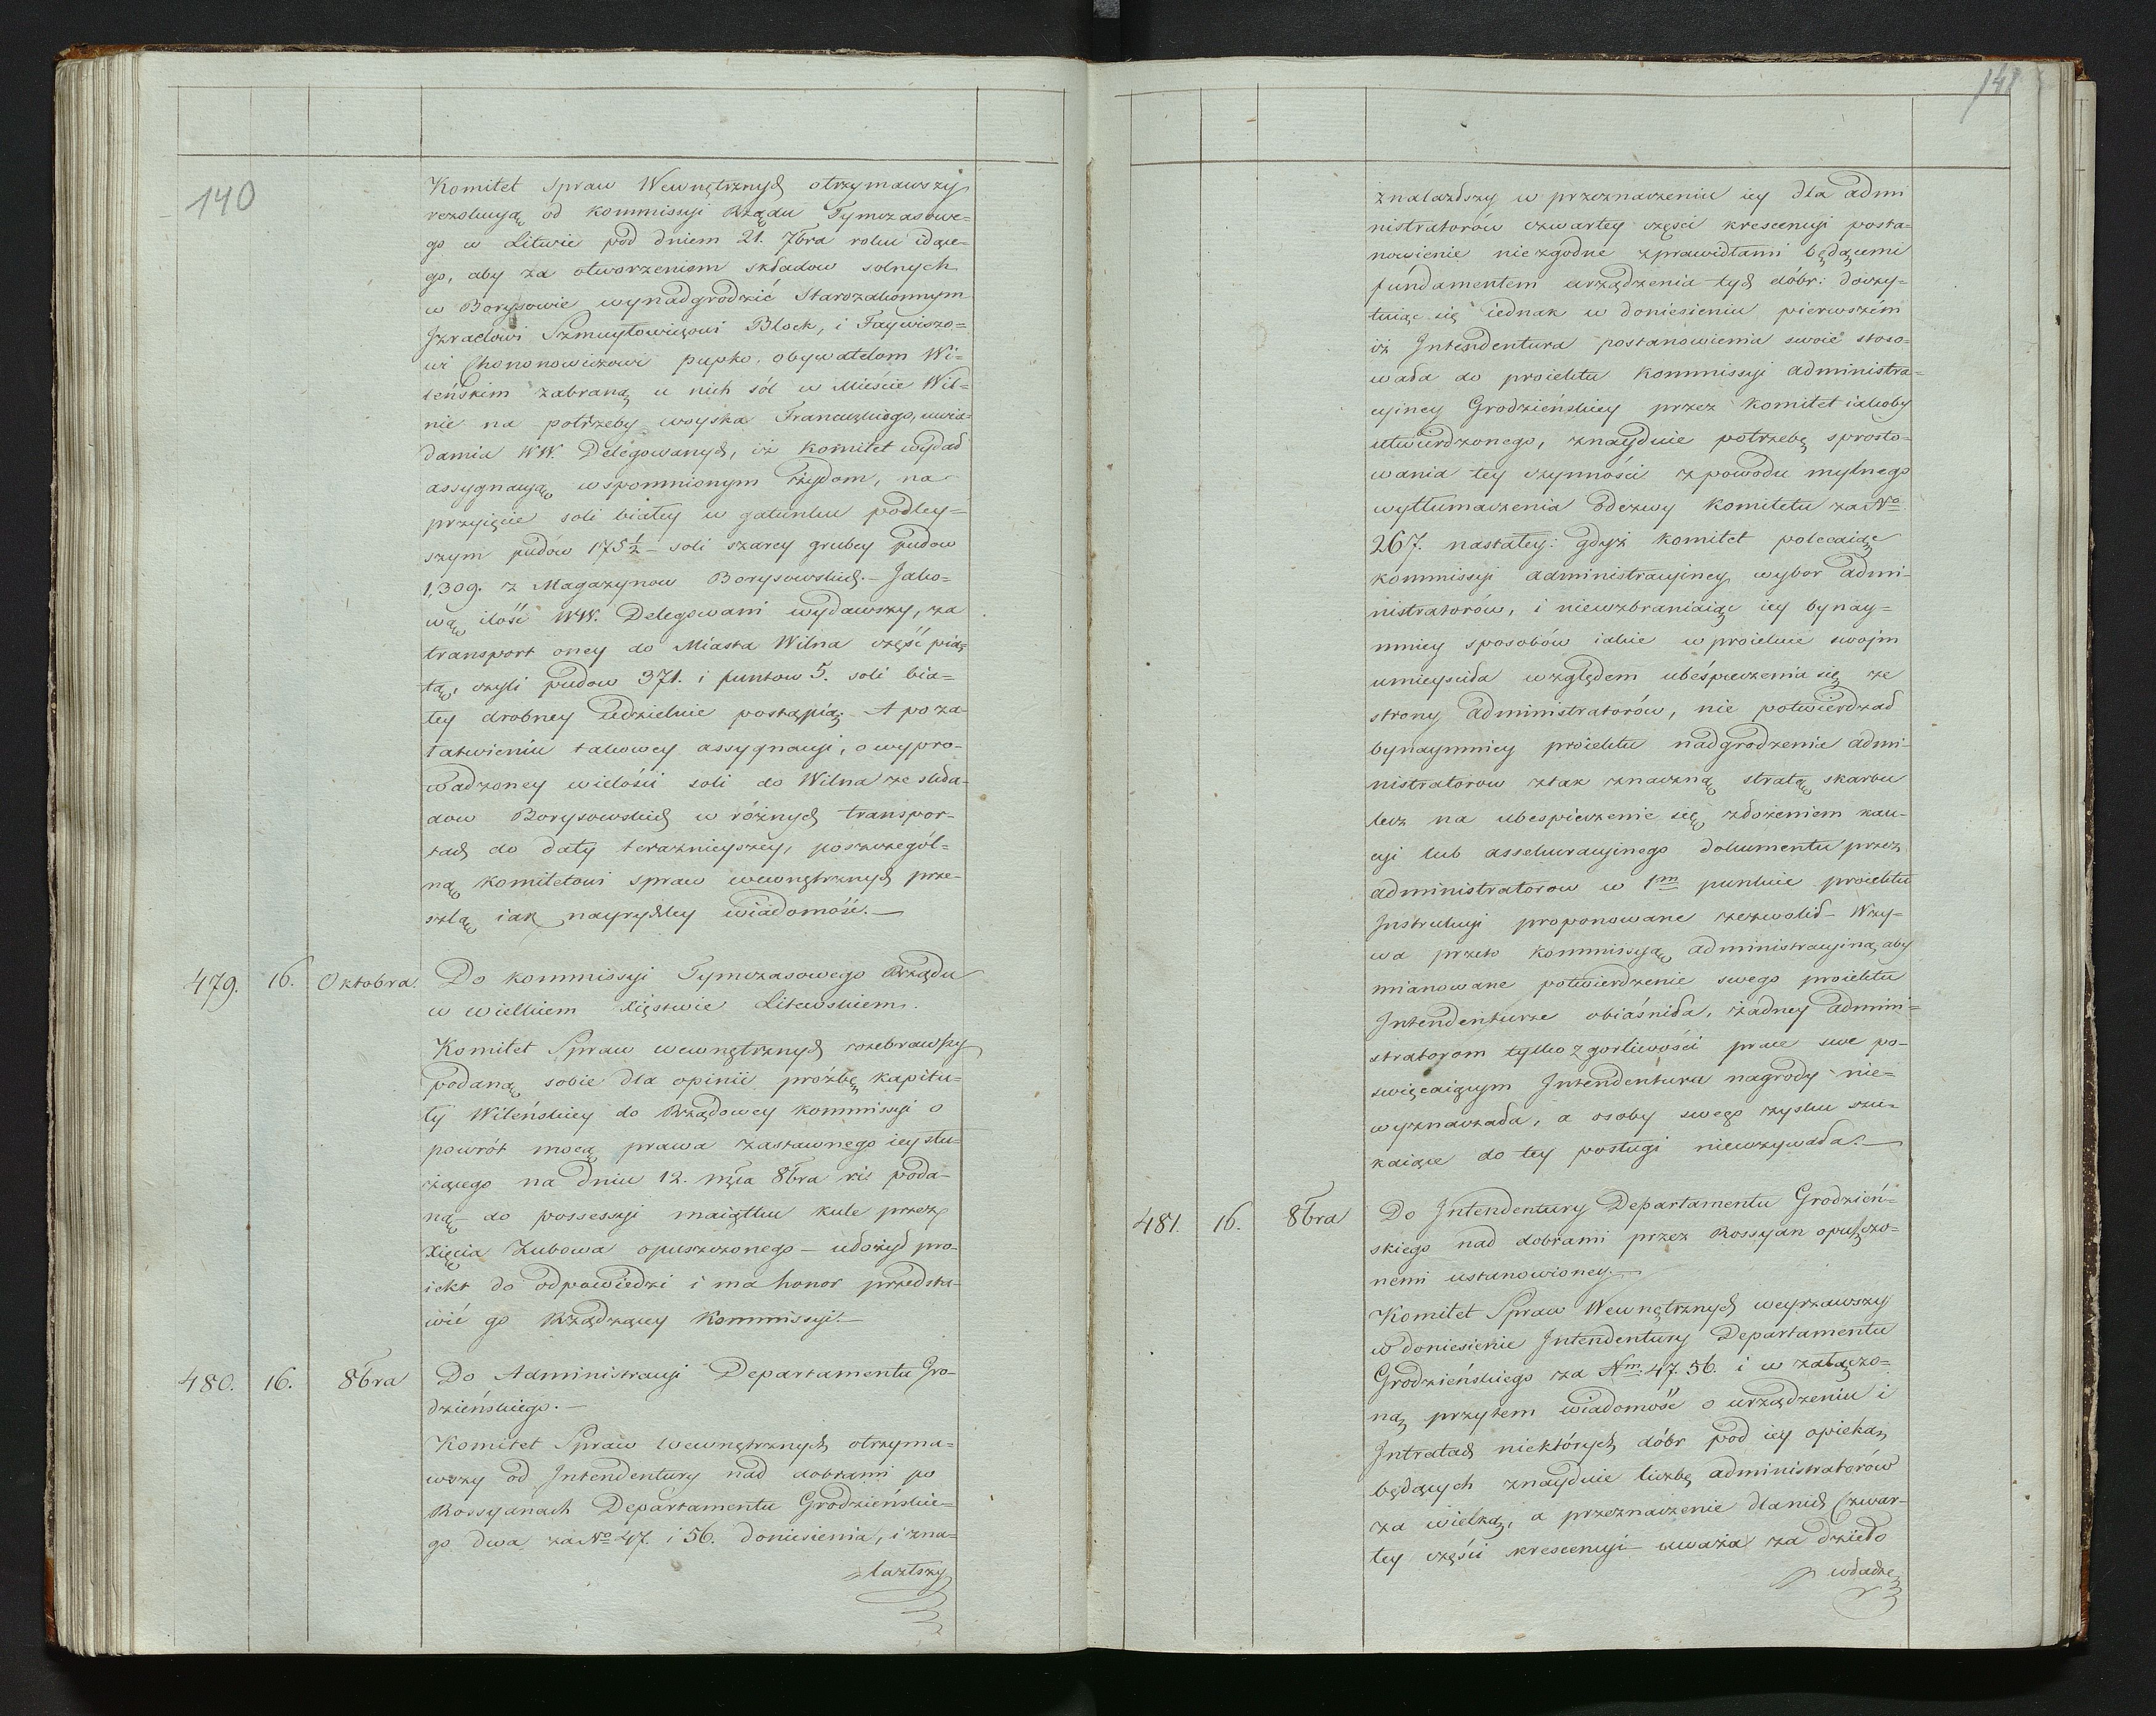 140
Komitet Spraw Wewnętrznych otrzymawszy
rezolucyą od Kommissyi Rządu Tymczasowe=
go w Litwie pod dniem 21. 7bra roku idące=
go, aby za otworzeniem składow solnych
w Borysowie wynadgrodzić Starozakonnym
Izraelowi Szmuyłowiczowi Block, i Faywiszo=
wi Chononowiczowi pupko, obywatelom Wi=
leńskim zabraną u nich sól w Mieście Wil=
nie na potrzeby woyska Francuzkiego, uwia=
damia WW. Delegowanych, iż Komitet wydał
assygnacyą wspomnionym żydom, na
przyięcie soli białey w gatunku podley=
szym pudów 175 1/2 – soli szarey grubey pudow
1,309. z Magazynow Borysowskich. – Jako=
wą ilość WW. Delegowani wydawszy, za
transport oney do Miasta Wilna część pią=
tą, czyli pudow 371. i funtow 5. soli bia=
łey drobney udzielnie postąpią. A po za=
łatwieniu takowey assygnacyi, o wypro=
wadzoney wielości soli do Wilna ze skła=
dow Borysowskich w różnych transpor=
tach do daty teraznieyszey, poszczegól=
ną Komitetowi spraw wewnętrznych prze=
szlą iak nayrychley wiadomość. —
479. 16. Oktobra. Do kommissyi Tymczasowego Rządu
w wielkiem Xięstwie Litewskiem.
Komitet Spraw wewnętrznych rozebrawszy
podaną sobie dla opinii prożbę kapitu=
ły Wileńskiey do Rządowey kommissyi o
powrót mocą prawa zastawnego iey słu=
żącego na dniu 12. mca 8bra rb poda=
ną – do possessyi maiątku kule przez
Xięcia Zubowa opuszczonego – ułożył pro=
iekt do odpowiedzi i ma honor przedsta=
wić go Rządzącey Kommissyi. —
480. 16. 8bra Do Administracyi Departamentu Gro=
dzieńskiego. —
Komitet Spraw Wewnętrznych otrzyma=
wszy od Intendentury nad dobrami po
Rossyanach Departamentu Grodzieńskie=
go dwa za No 47. i 56. doniesienia, i zna=
lazłszy
141
znalazłszy w przeznaczeniu iey dla admi
nistratorów czwartey części krescencyi posta=
nowienie niezgodne z prawidłami będącemi
fundamentem urządzenia tych dóbr: doczy=
tuiąc się iednak w doniesieniu pierwszém
iż Intendentura postanowienia swoie stoso=
wała do proiektu Kommissyi administra=
cyiney Grodzieńskiey przez Komitet iakoby
utwierdzonego, znayduie potrzebę sprosto=
wania tey czynności z powodu mylnego
wytłumaczenia odezwy Komitetu za No
267. nastałey: gdyż Komitet polecaiąc
kommissyi administracyiney wybor admi=
nistratorów, i niewzbraniaiąc iey bynay=
mniey sposobów iakie w proiekcie swojm
umieyściła względem ubespieczenia się ze
strony administratorów, nie potwierdzał
bynaymniey proiektu nadgrodzenia admi=
nistratorow z tak znaczną stratą skarbu
lecz na ubespieczenie się złożeniem kau=
cyi lub assekuracyinego dokumentu przez
administratorow w 1m punkcie proiektu
Instrukcyi proponowane zezwolił – Wzy=
wa przeto kommissyą administracyiną aby
mianowane potwierdzenie swego proiektu
Intendenturze obiaśniła, żadney admini=
stratorom tylko z gorliwości prace swe po=
święcaiącym Intendentura nagrody nie=
wyznaczała, a osoby swego zysku szu=
kaiące do tey posługi niewzywała. —
481. 16. 8bra Do Intendentury Departamentu Grodzień=
skiego nad dobrami przez Rossyan opuszczo=
nemi ustanowioney. —
Komitet Spraw Wewnętrznych weyrzawszy
w doniesienie Intendentury Departamentu
Grodzieńskiego za Nm 47. 56. i w załączo=
ną przytem wiadomość o urządzeniu i
Intratach niektórych dóbr pod iey opieką
będących znayduie liczbę administratorów
za wielką, a przeznaczenie dla nich Czwar=
tey części krescencyi uważa za dzieło
władzę